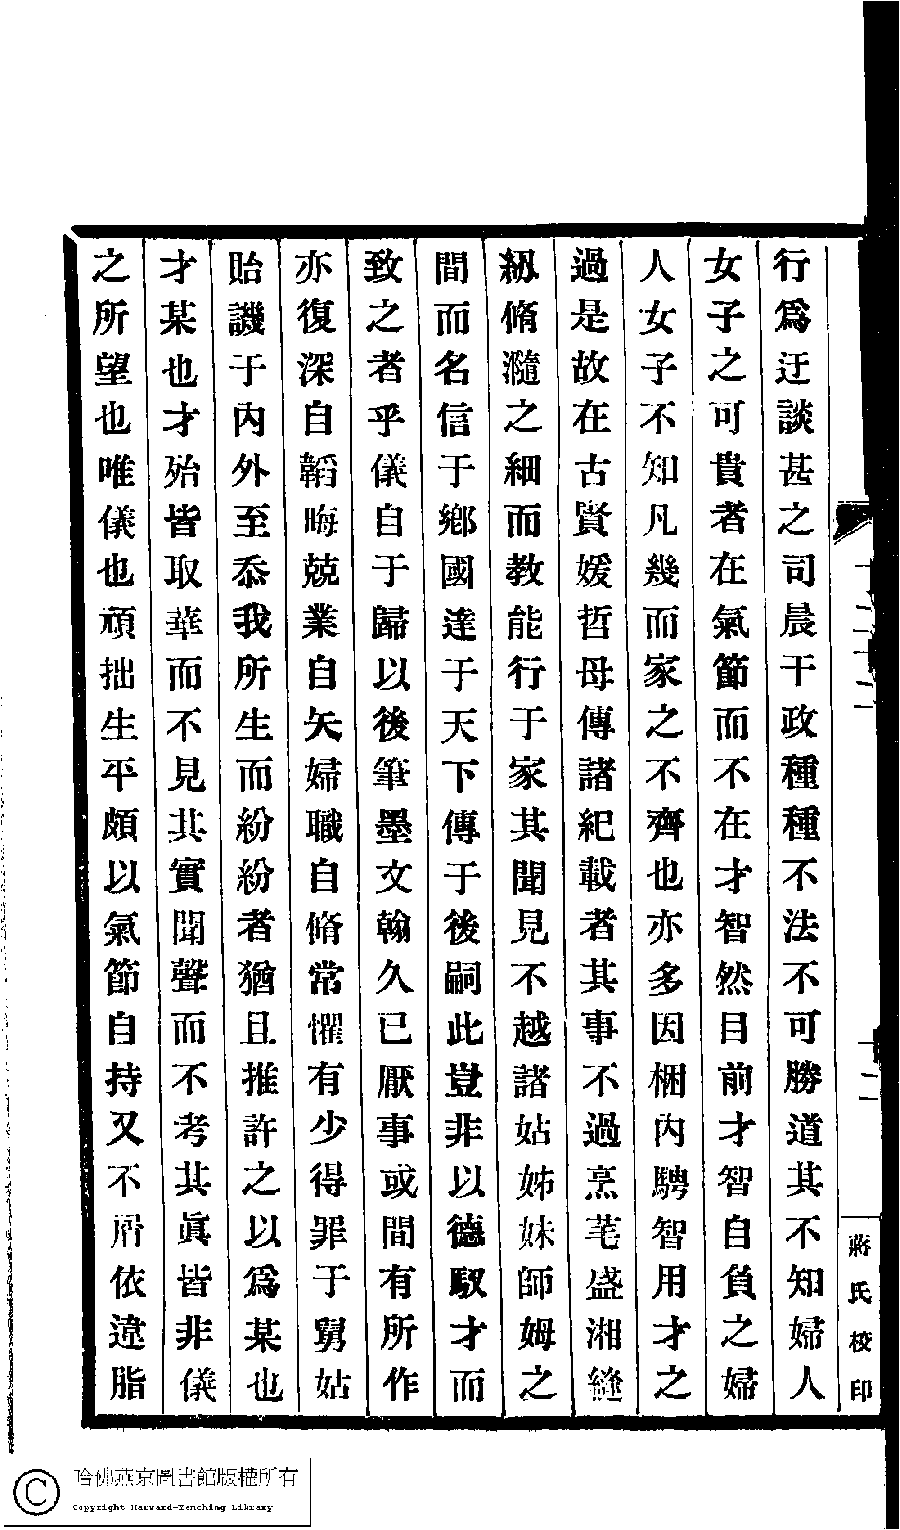 行爲迂談甚之司晨干政種種不法不可勝道其不知婦人
女子之可貴者在氣節而不在才智然目前才智自負之婦
人女子不知凡幾而家之不齊也亦多因梱內騁智用才之
過是故在古賢媛哲母傳諸紀載者其事不過烹芼盛湘縫
紉脩瀡之細而教能行于家其聞見不越諸姑姊妹師姆之
間而名信于鄉國達于天下傳于後嗣此豈非以德馭才而
致之者乎儀自于歸以後筆墨文翰久已厭事或間有所作
亦復深自韜晦兢業自矢婦職自脩常懼有少得罪于舅姑
貽譏于內外至忝我所生而紛紛者猶且推許之以爲某也
才某也才殆皆取華而不見其實聞聲而不考其眞皆非儀
之所望也唯儀也頑拙生平頗以氣節自持又不屑依違脂
十二
蔣氏校印
哈佛燕京圖書館版權所有
Copyright Harvard-Yenching Library